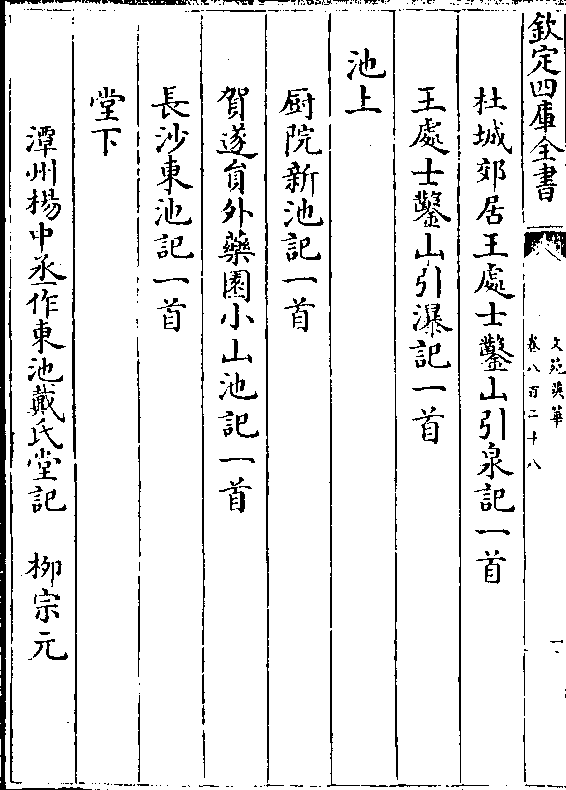 欽定四庫全書
文苑英華
卷八百二十八
一
杜城郊居王處士鑿山引泉記一首
王處士鑿山引瀑記一首
池上
厨院新池記一首
賀遂員外藥園小山池記一首
長沙東池記一首
堂下
潭州楊中丞作東池戴氏堂記 柳宗元